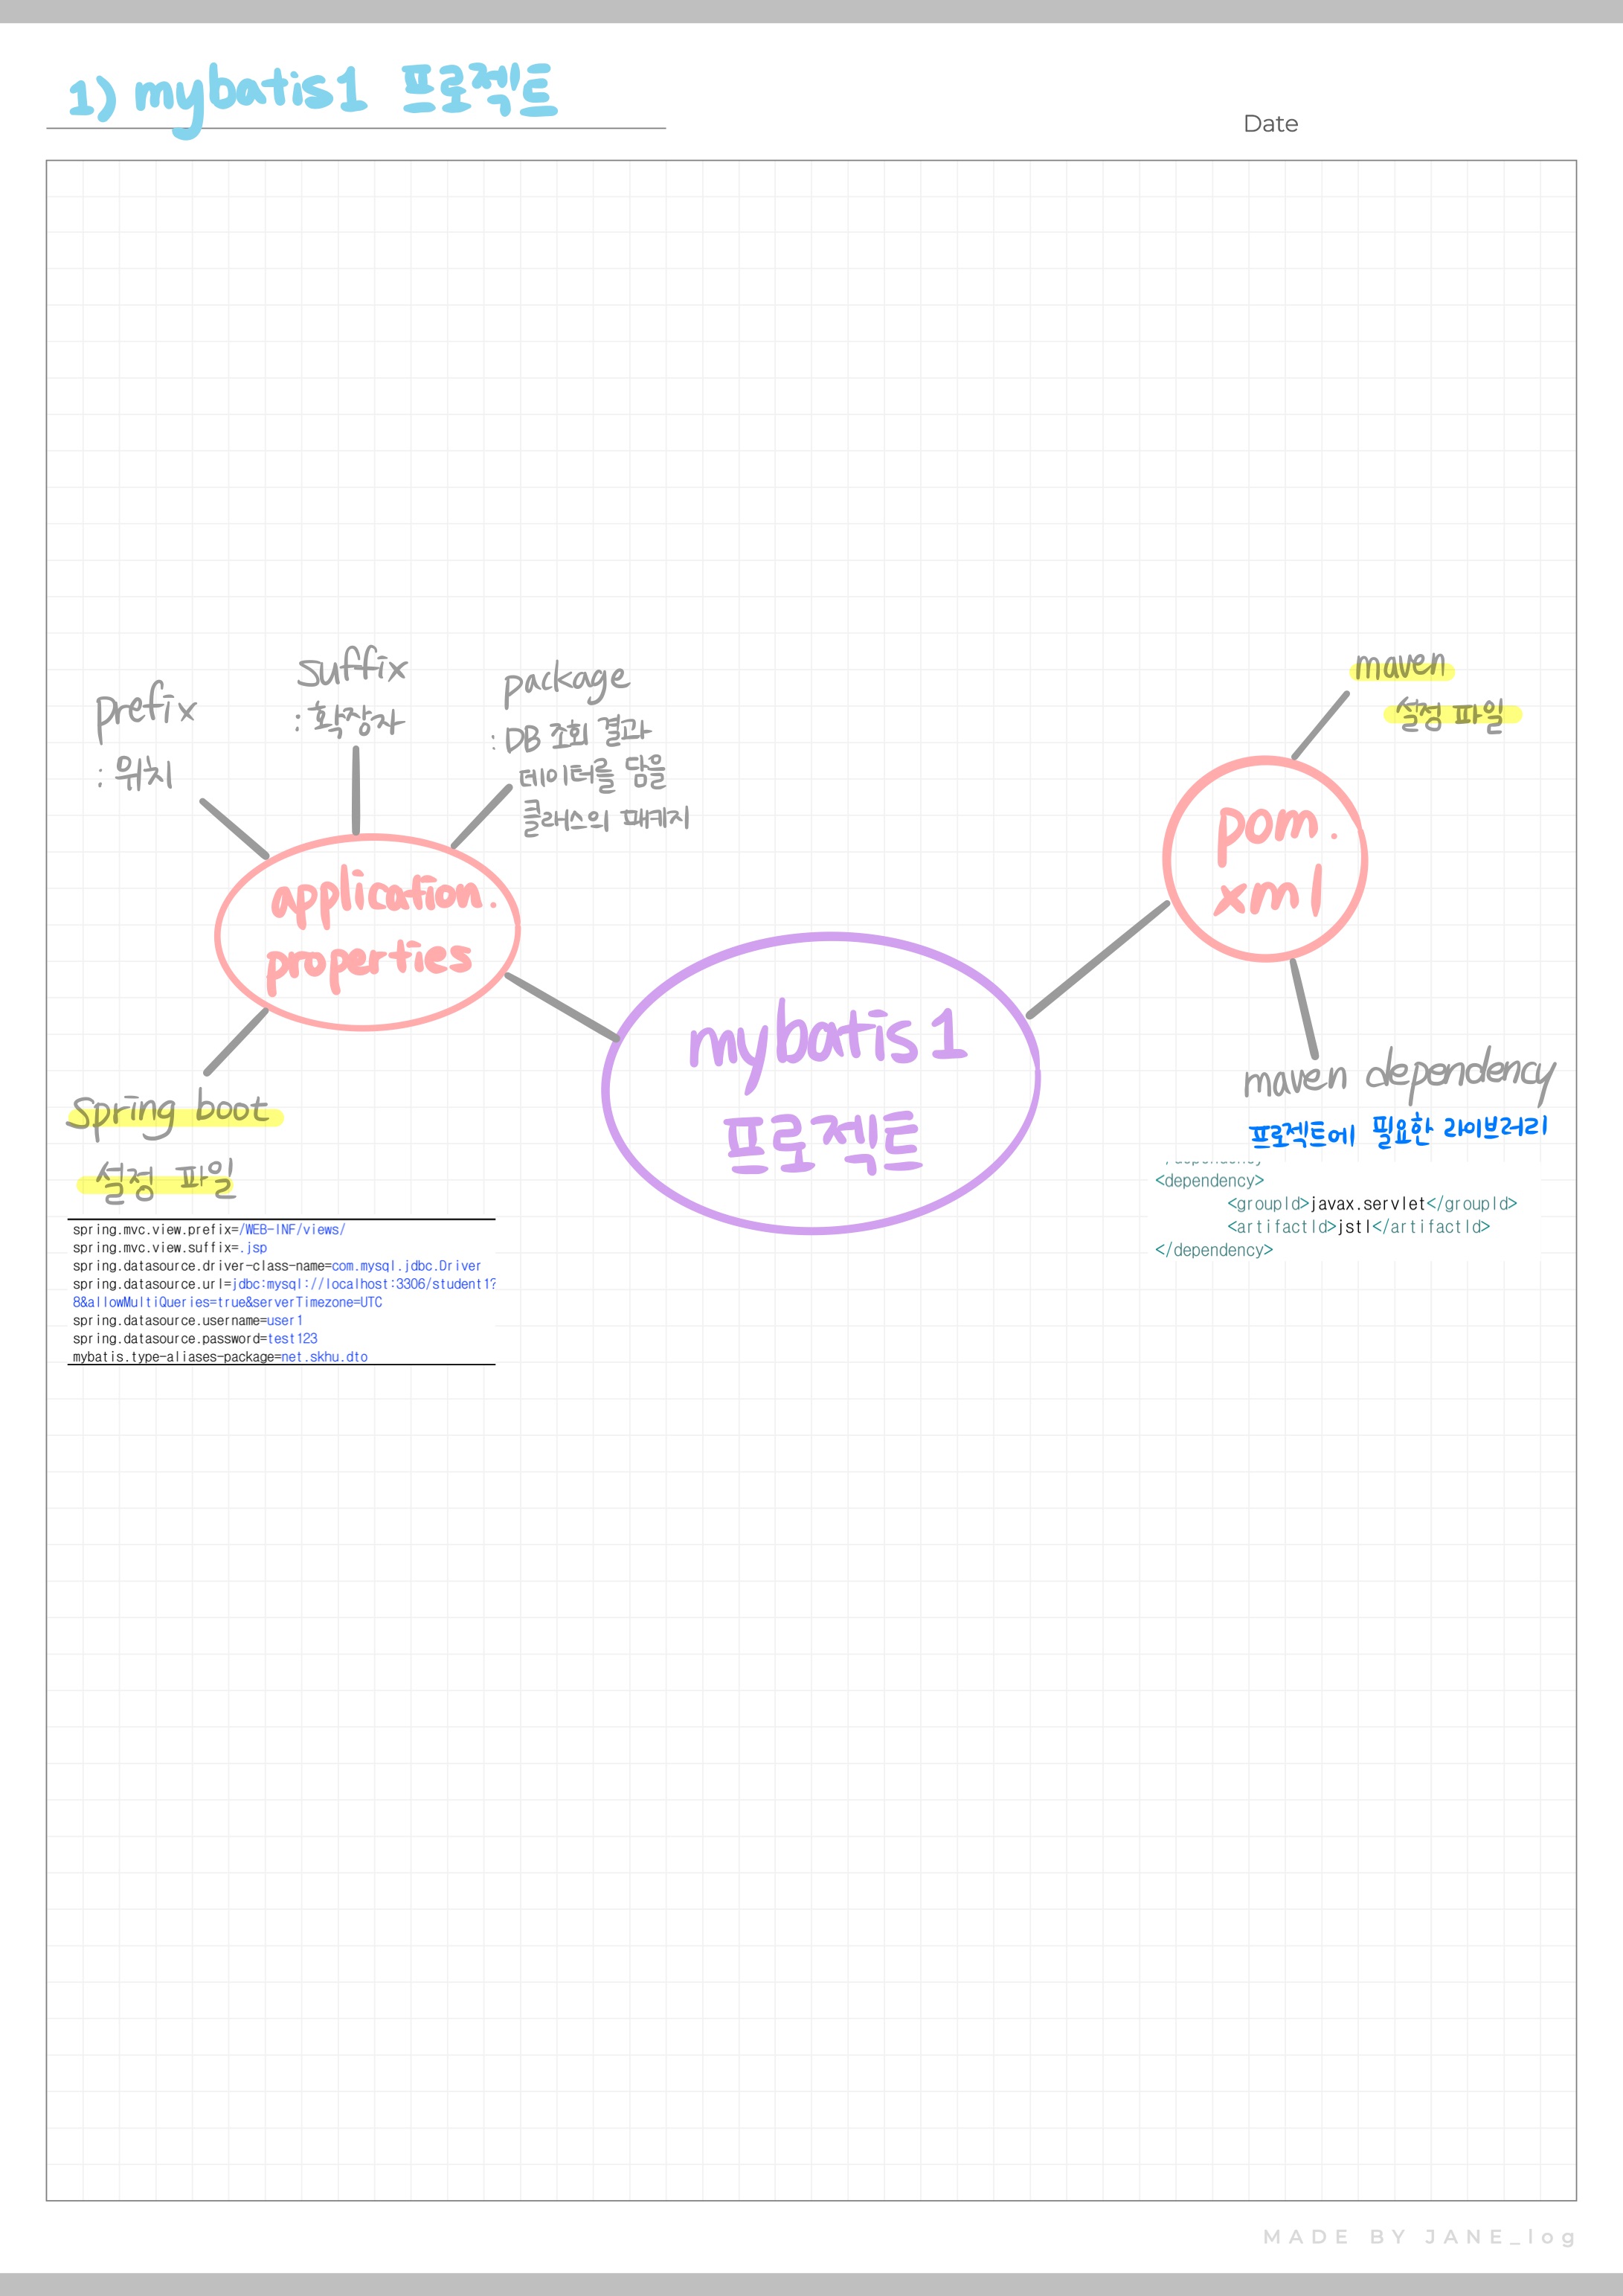 1) mybatis1 프로젝트
Date
prefix
: 위치
suffix
: 확장자
package
: DB 조회 결과
데이터를 담을
클래스의 패키지
application.
properties
Spring boot
설정 파일
spring.mvc.view.prefix=/WEB-INF/views/
spring.mvc.view.suffix=.jsp
spring.datasource.driver-class-name=com.mysql.jdbc.Driver
spring.datasource.url=jdbc:mysql://localhost:3306/student1?
8&allowMultiQueries=true&serverTimezone=UTC
spring.datasource.username=user1
spring.datasource.password=test123
mybatis.type-aliases-package=net.skhu.dto
mybatis1
프로젝트
maven
설정 파일
pom.
xml
maven dependency
프로젝트에 필요한 라이브러리
<dependency>
<groupId>javax.servlet</groupId>
<artifactId>jstl</artifactId>
</dependency>
MADE BY JANE_log